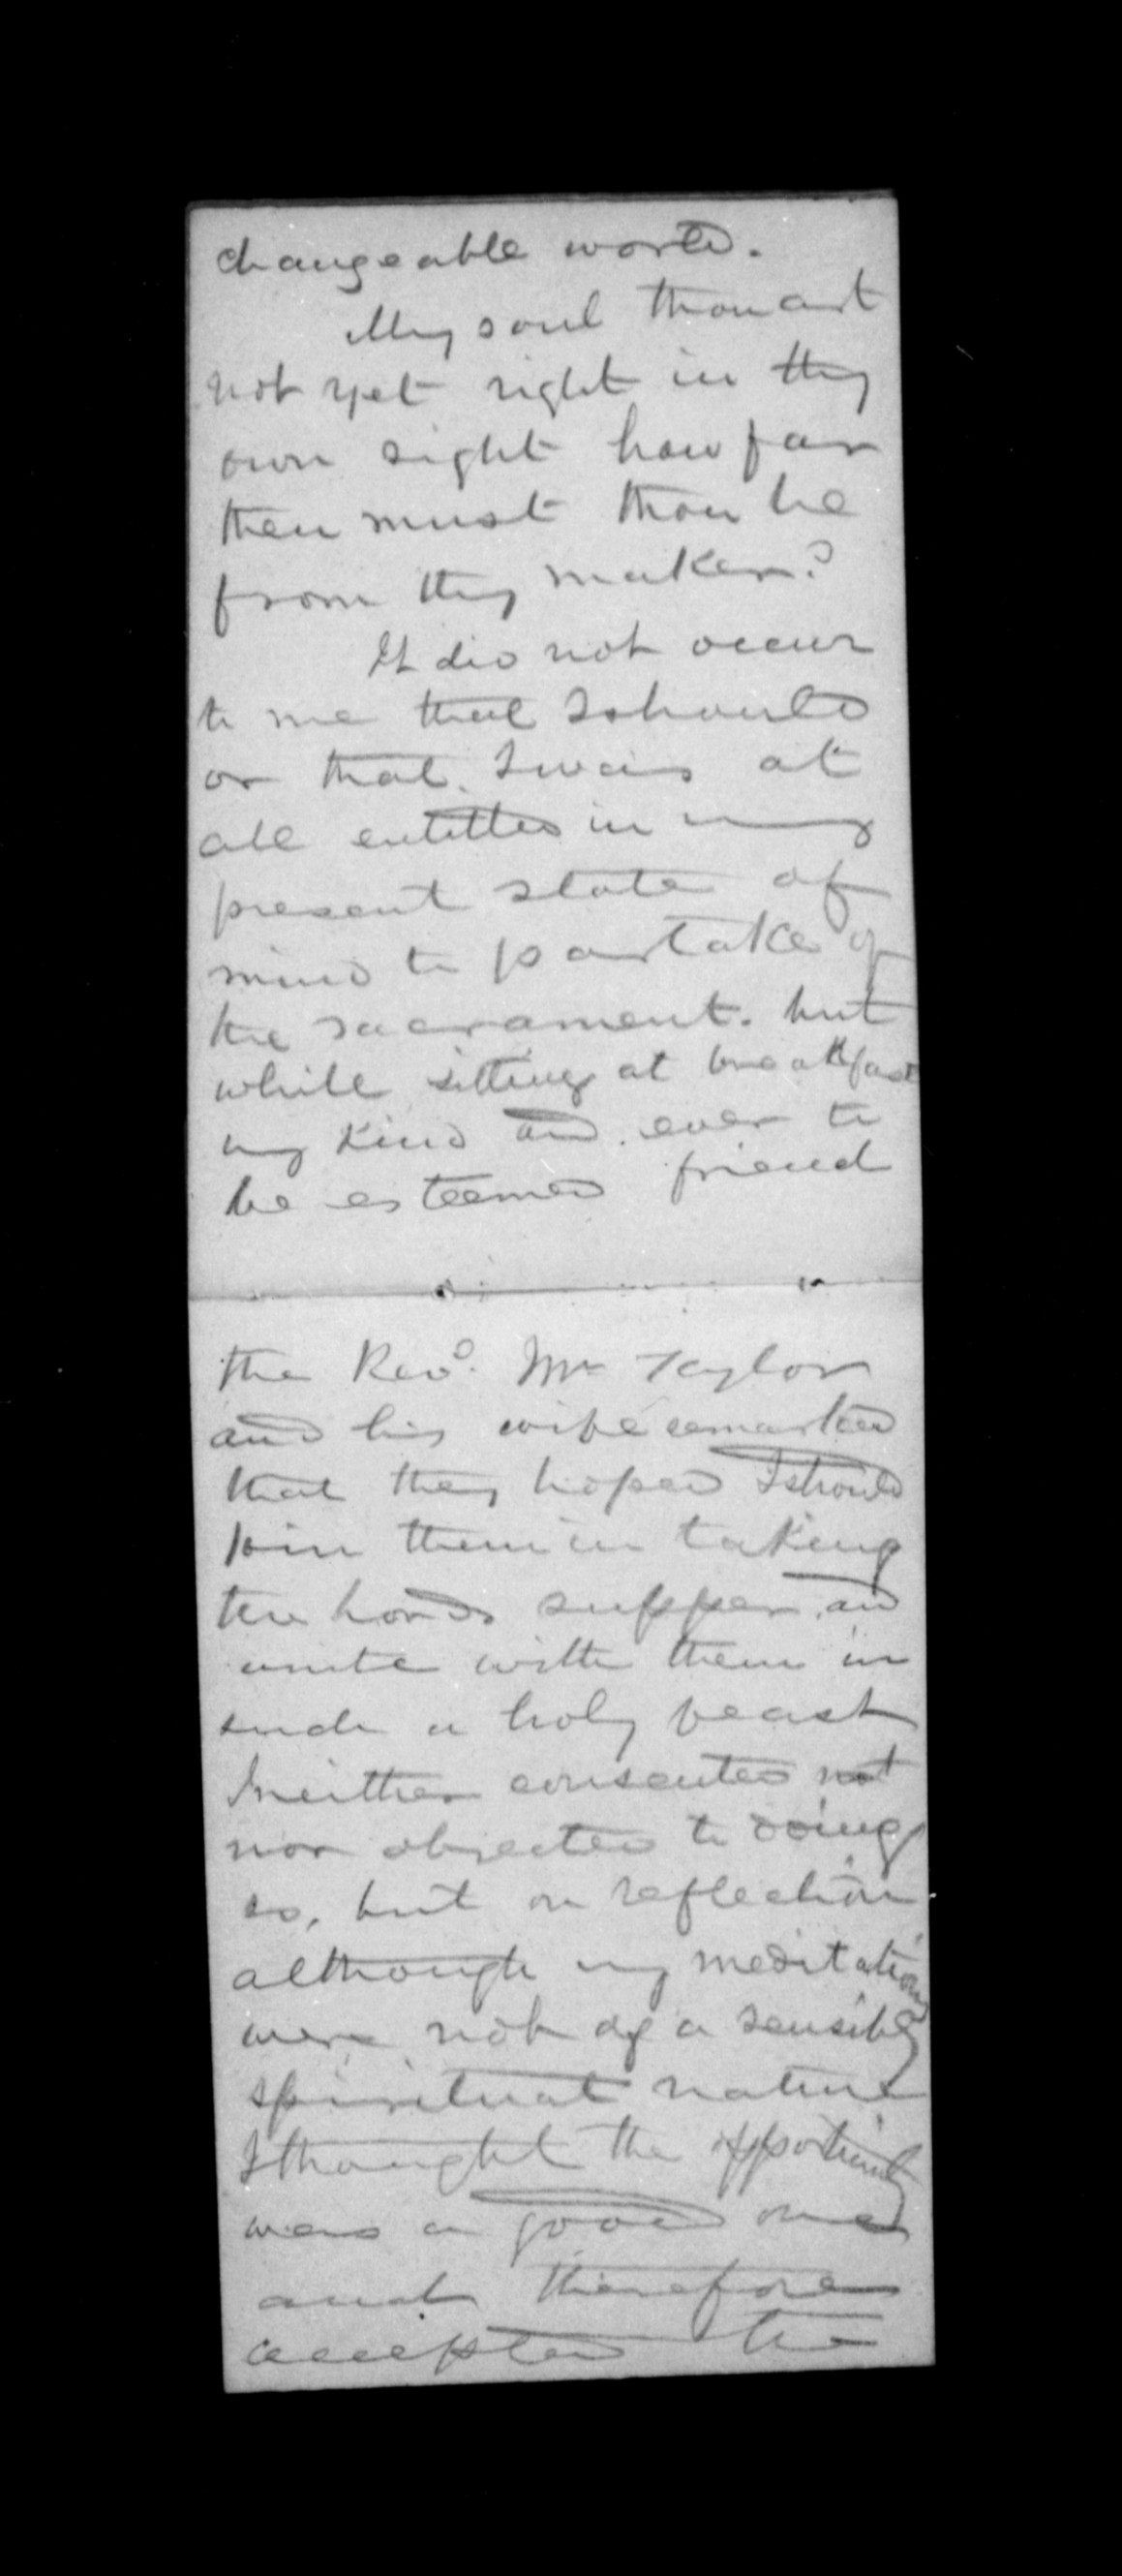 changeable world.
My soul thou art
not yet right in thy
own sight how far
then must thou be
from thy maker?
It did not occur
to me that I should
or that I was at
all entitled in my
present state of
mind to partake of
the sacrament. but
while sitting at breakfast
my kind and ever to
be esteemed friend
the Revd. Mr Taylor
and his wife remarked
that they hoped I should
join them in taking
the Lords supper and
unite with them in
such a holy feast
I neither consented not
nor objected to doing
so, but on reflection
although my meditations
were not of a sensibly
spiritual nature
I thought the opportunity
was a good one
and therefore
accepted the